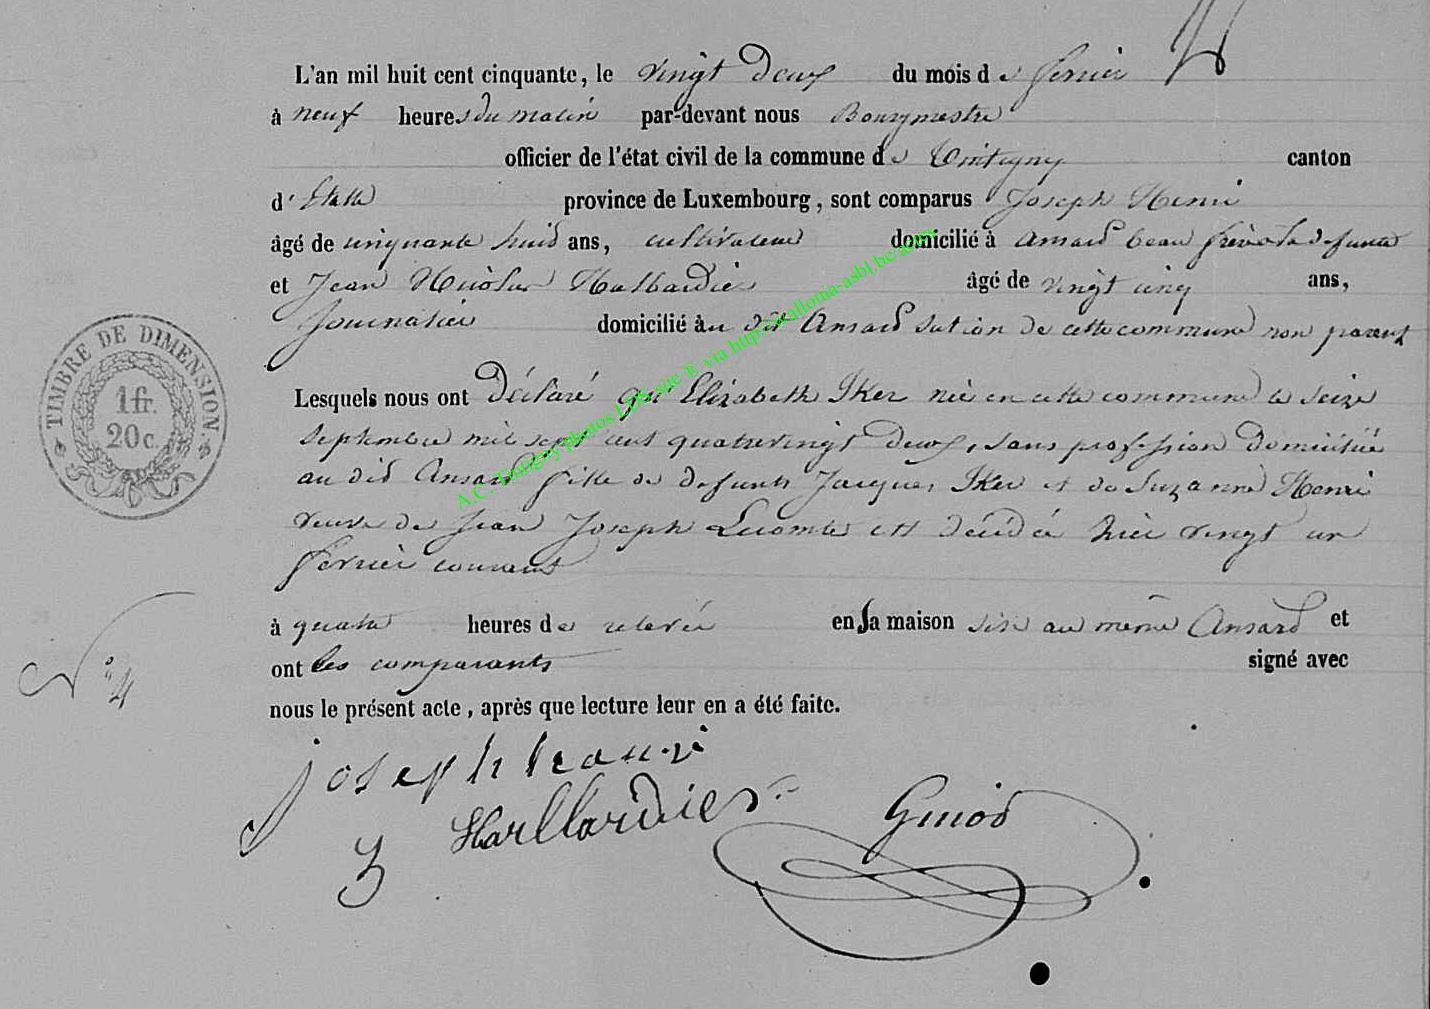 L'an mil huit cent cinquante, le vingt Deux du mois de fevrier
à neuf heures du matin par-devant nous Bourgmestre
officier de l'état civil de la commune de Tintigny canton
d'Etalle province de Luxembourg, sont comparus Joseph Henri
âgé de cinquante huid ans, cultivateur domicilié à Ansard beau frère de la defunte
et Jean Nicolas Halbardier âgé de vingt cinq ans,
Journalier domicilié au dit Ansard section de cette commune non parent
Lesquels nous ont Déclaré que Elizabeth Iker née en cette commune le seize
septembre mil sept cent quatrevingt deux, sans profession domiciliée
au did Ansard fille de defunts Jacques Iker et de Suzanne Henri
veuve de Jean Joseph Lecomte est décédée hier vingt un
fevrier courant
à quatre heures de relevée en sa maison sise au même Ansard et
ont les comparants signé avec
nous le présent acte, après que lecture leur en a été faite.
N° 4
joseph
Guiod
TIMBRE DE DIMENSION
1 fr.
20 c.
A.C. Tintigny photos LDS site ® via http://wallonia-asbl.be/actes